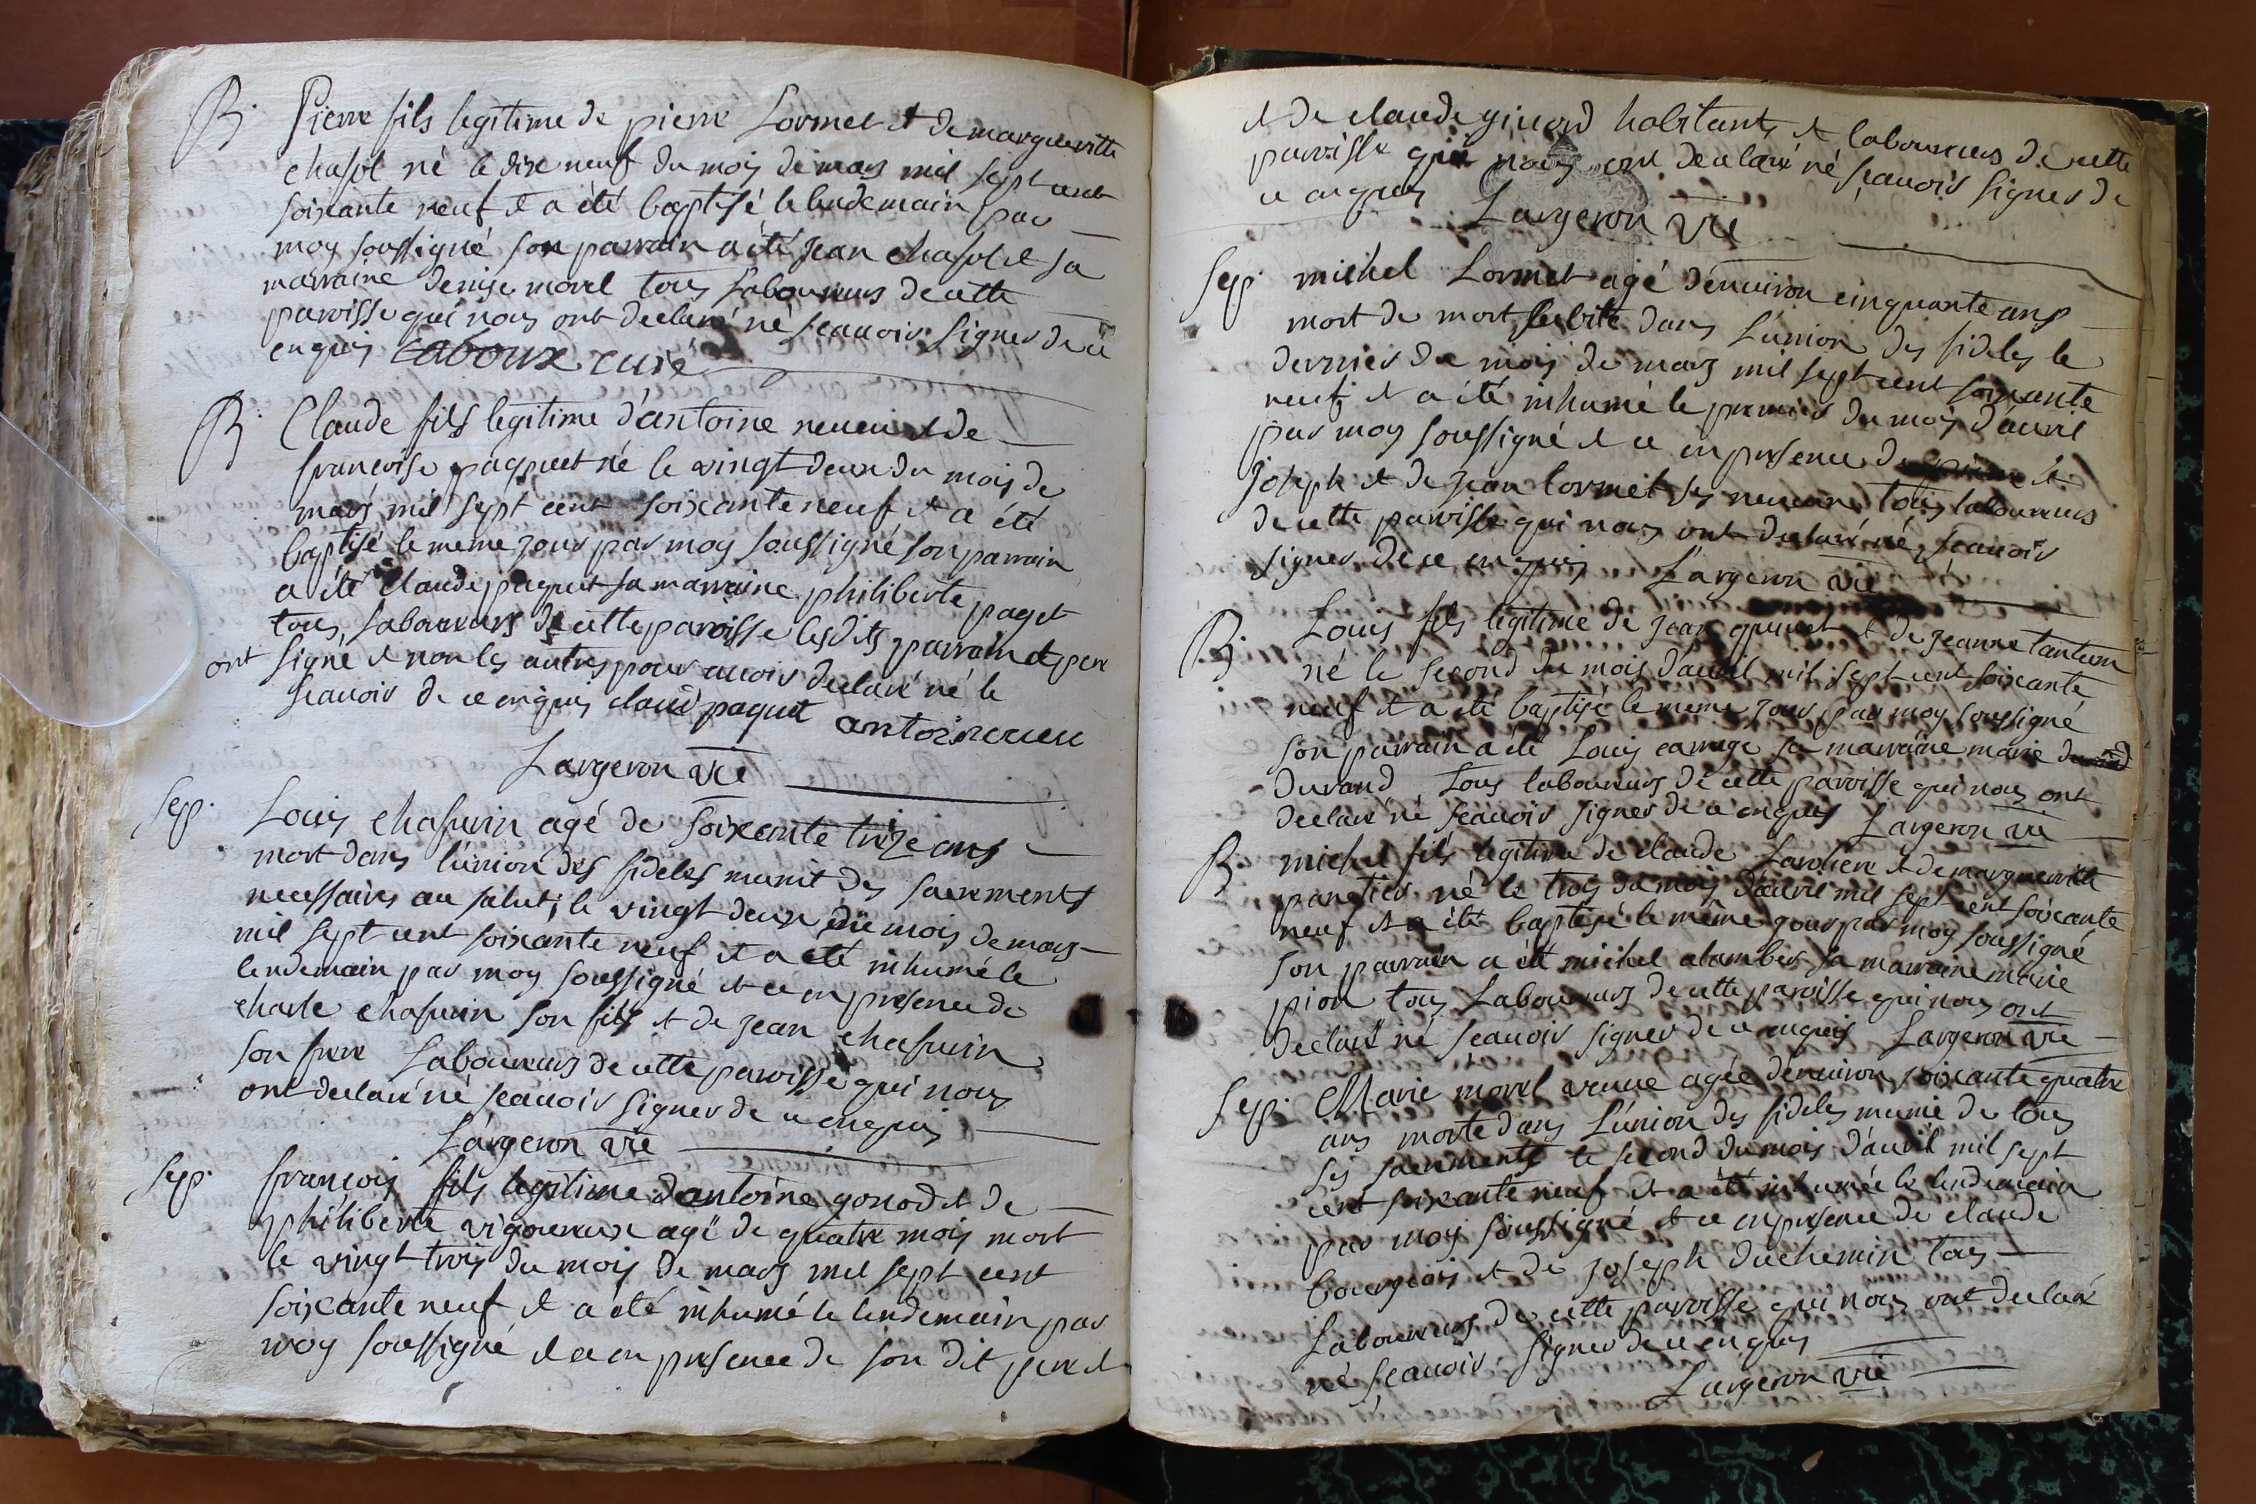 B. Pierre fils legitime de pierre Lormet et de marguerite
chasot né le dixe neuf du mois de mars mil sept cent
soixante neuf et a été baptisé le lendemain par
moy soussigné son parrain a été jean chasot et sa
marraine denise morel tous laboureurs de cette
paroisse qui nous ont declaré né scauoir signer de ce
enquis Laboux curé
B. Claude fils legitime d'antoine neueu et de
francoise paquet né le vingt deux du mois de
mars mil sept cent soixante neuf et a été
baptisé le meme jour par moy soussigné son parrain
a été claude paquet sa marraine philiberte paget
tous laboureurs de cette paroisse lesdits parrain et pere
ont signé et non les autres pour auoir declaré né le
scauoir de ce enquis claude paquet antoi neueu
Largeron vic
Sep. Louis chasurin agé de soixante treize ans
mort dans l'union des fideles munit des sacrements
necessaires au salut, le vingt deux du mois de mars
mil sept cent soixante neuf et a été inhumé le
lendemain par moy soussigné et ce en presence de
charle chasurin son fils et de jean chasurin
son frere Laboureurs de cette paroisse qui nous
ont declaré né scauoir signer de ce enquis
Largeron vic
Sep. francois fils legitime d'antoine gonod et de
philiberte vigoureux agé de quatre mois mort
le vingt trois du mois de mars mil sept cent
soixante neuf et a été inhumé le lendemain par
moy soussigné et ce en presence de son dit pere et
et de claude habitants et laboureurs de cette
paroisse qui nous ont declaré né scauoir signer de
ce enquis Largeron vic
Sep. michel Lormet agé d'enuiron cinquante ans
mort de mort subite dans l'union des fideles le
dernier du mois de mars mil sept cent soixante
neuf et a été inhumé le premier du mois d'auril
par moy soussigné et ce en presence de et
joseph et de jean lormet ses neueux tous laboureurs
de cette paroisse qui nous ont declaré né scauoir
signer de ce enquis Largeron vic
B. Louis fils legitime de jean et de jeanne tantum
né le second du mois d'auril mil sept cent soixante
neuf et a été baptisé le meme jour par moy soussigné
son parrain a été Louis carruge sa marraine marie
Durand tous laboureurs de cette paroisse qui nous ont
declaré né scauoir signer de ce enquis Largeron vic
B. michel fils legitime de claude Laroliere et de marguerite
panetier né le trois du mois d'auril mil sept cent soixante
neuf et a été baptisé le même jour par moy soussigné
son parrain a été michel alamber sa marraine marie
pion tous Laboureurs de cette paroisse qui nous ont
declaré né scauoir signer de ce enquis Largeron vic
Sep. Marie morel veuue agée d'enuiron soixante quatre
ans morte dans l'union des fideles munie de tous
ses sacrements le second du mois d'auril mil sept
cent soixante neuf et a été inhumée le lendemain
par moy soussigné et ce en presence de claude
bourgeois et de joseph duchemin tous
Laboureurs de cette paroisse qui nous ont declaré
né scauoir signer de ce enquis
Largeron vic